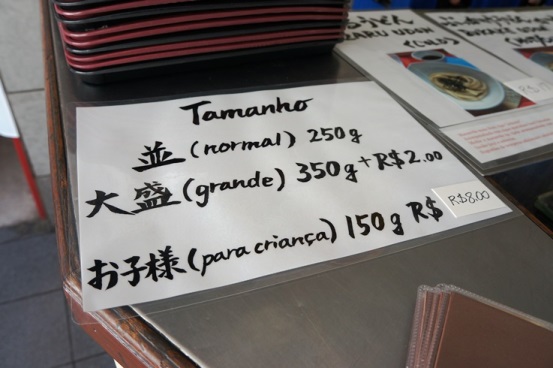 Tamanho
並 (normal) 250g
大盛 (grande) 350g + R$2.00
お子様 (para criança) 150g R$ R$8.00
ZARU UDON
(COLD)